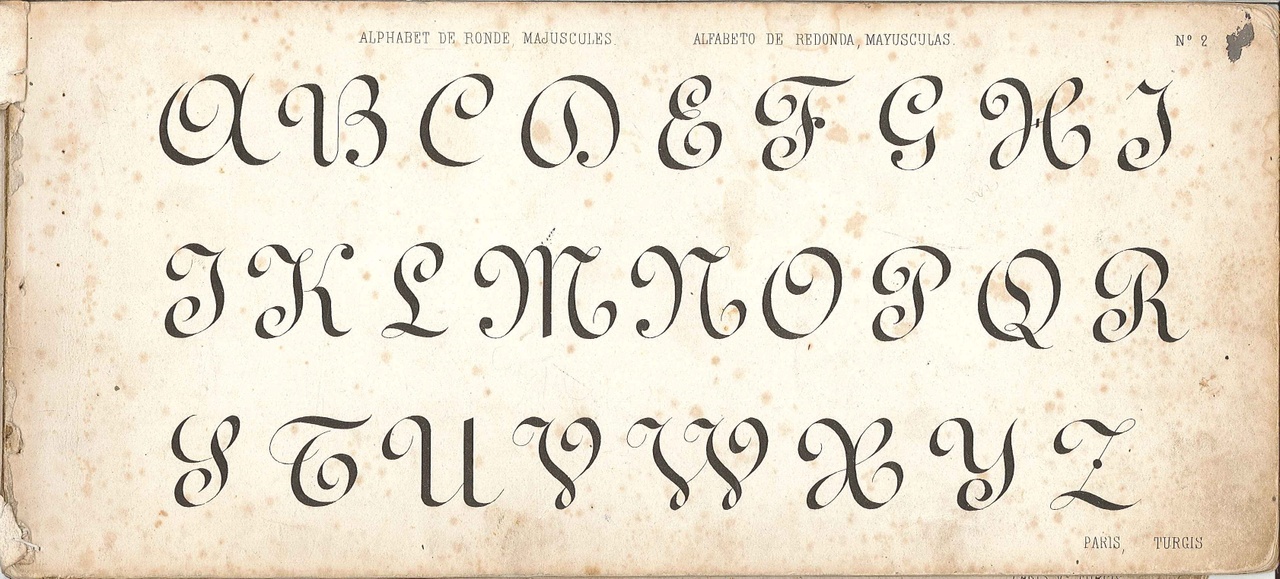 ALPHABET DE RONDE, MAJUSCULES. ALFABETO DE REDONDA, MAYUSCULAS. Nº 2
A B C D E F G H I
J K L M N O P Q R
S T U V W X Y Z
PARIS, TURGIS